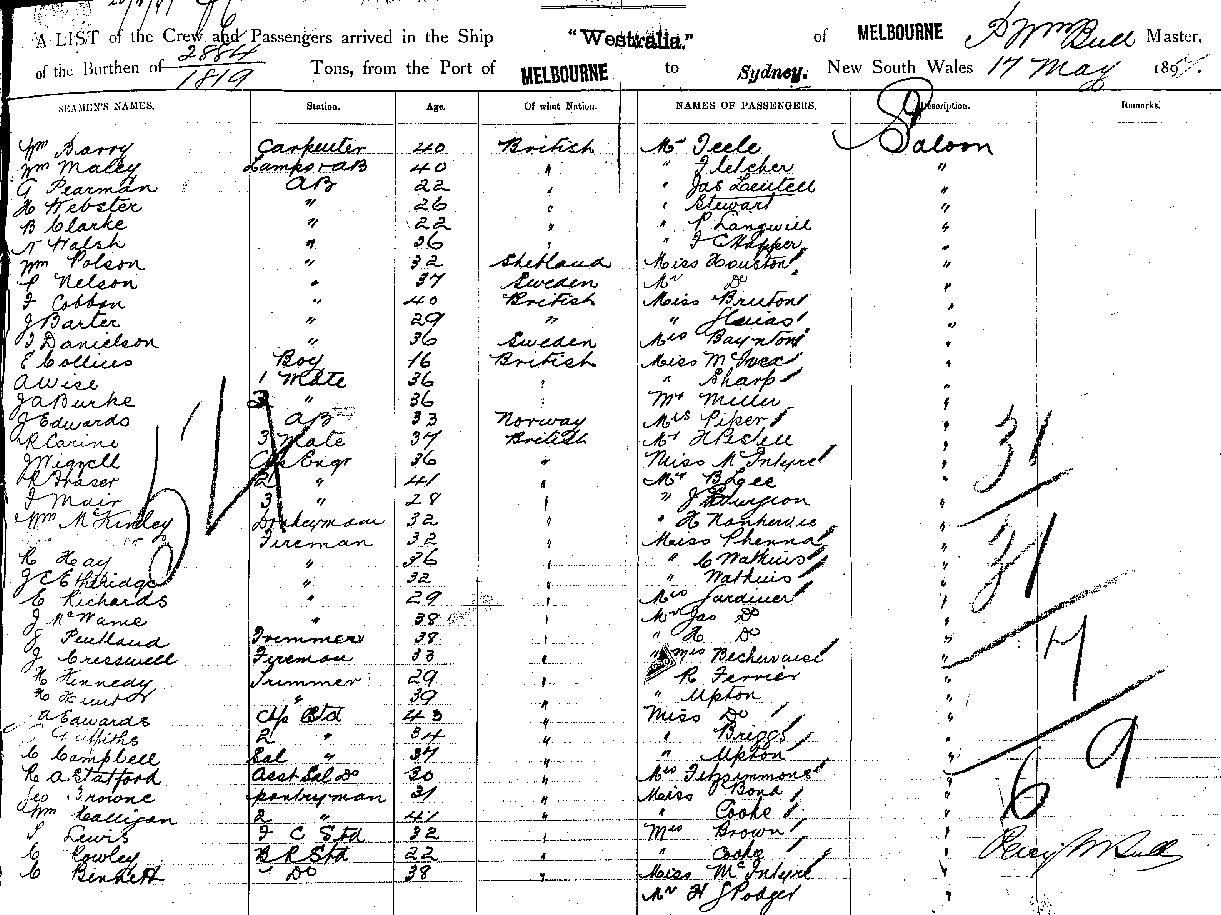 A LIST of the Crew and Passengers arrived in the Ship "Westralia." of MELBOURNE Master,
of the Burthen of 2884/1819 Tons, from the Port of MELBOURNE to Sydney. New South Wales 17 May 189
SEAMEN'S NAMES. Station. Age. Of what Nation. NAMES OF PASSENGERS. Description. Remarks.
Wm Barry Carpenter 40 British Mr Teele Saloon
Wm Maley Lamps & AB 40 " " Fletcher "
G Pearman AB 22 " " Jas "
H Webster " 26 " " Stewart "
B Clarke " 22 " " P Langwill "
N Walsh " 36 " " "
Wm Polson " 32 Shetland Miss Houston "
P Nelson " 37 Sweden Mr Do "
F Cobbon " 40 British Miss Bruton "
J Barter " 29 " " "
J Danielson " 36 Sweden Mrs Baynton "
E Collins Boy 16 British Miss "
A Wise 1 Mate 36 " " Sharp "
J A Burke 2 " 36 " Mr Miller "
J Edwards AB 33 Norway Mrs Piper "
R Carine 3 Mate 37 British Mr "
J Wignell Engr 36 " Miss McIntyre "
R Fraser 2 " 41 " Mr B Gee "
J Mair 3 " 28 " " J "
Wm McKinley Donkeyman 32 " " H "
Fireman 32 " Miss "
R Hay " 36 " " C Watkins "
J C Etheridge " 32 " " Watkins "
E Richards " 29 " Mrs Gardiner "
J McWame " 38 " Mr Jas Do "
J Pentland Trimmer 38 " " H Do "
J Cresswell Fireman 33 " Mrs Bechervaise "
H Kennedy Trimmer 29 " R Ferrier "
H Hunter " 39 " " Upton "
A Edwards Std 43 " Miss Do "
Griffiths 2 " 34 " " Briggs "
C Campbell Sal " 37 " " Upton "
R A Statford Asst Sal Do 30 " Mrs Fitzsimmons "
Geo Browne pantryman 31 " Miss Bond "
Wm Calligan 2 " 41 " " Cooke "
S Lewis F C Std 32 " Mrs Brown "
C Rowley B R Std 22 " " Cooke "
C Bennett " Do 38 " Miss McIntyre "
Mr H J Podger "
31
31
7
6 9